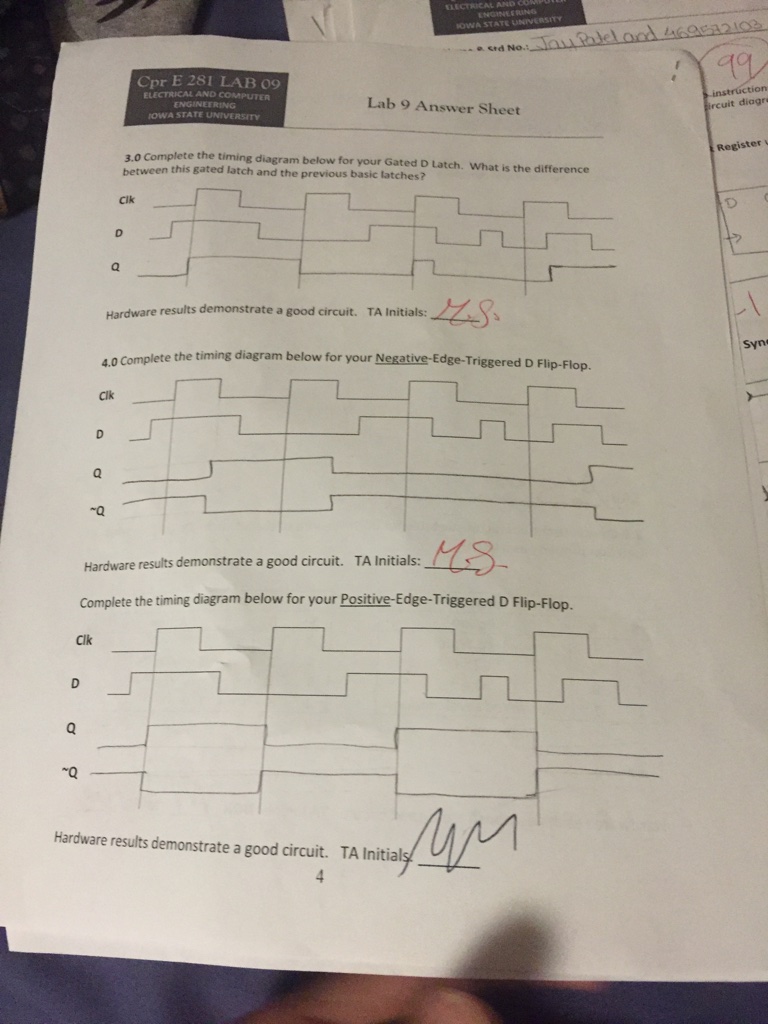 ELECTRICAL AND COMPUTER
ENGINEERING
IOWA STATE UNIVERSITY
No.: Jay Patel and 469572103
99
Cpr E 281 LAB 09
ELECTRICAL AND COMPUTER
ENGINEERING
IOWA STATE UNIVERSITY
Lab 9 Answer Sheet
instruction
Register
D
-1
3.0 Complete the timing diagram below for your Gated D Latch. What is the difference
between this gated latch and the previous basic latches?
Clk
D
Q
Hardware results demonstrate a good circuit. TA Initials: M.S.
4.0 Complete the timing diagram below for your Negative-Edge-Triggered D Flip-Flop.
Clk
D
Q
~Q
Hardware results demonstrate a good circuit. TA Initials: M.S.
Complete the timing diagram below for your Positive-Edge-Triggered D Flip-Flop.
Clk
D
Q
~Q
Hardware results demonstrate a good circuit. TA Initials:
4